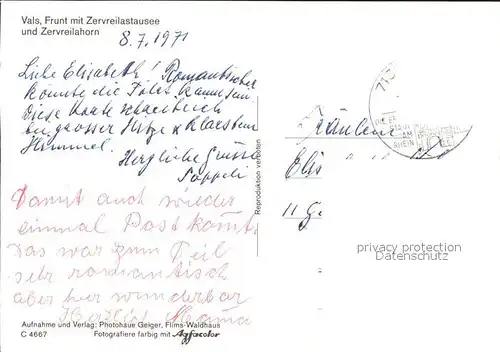 Vals, Frunt mit Zervreilastausee
und Zervreilahorn
8.7.1971
Liebe Elisabeth! Romantischer
könnte die Fotos kaum sein.
Diese Karte schreibe ich
bei grosser Hitze & klarstem
Himmel.
Herzliche Grüsse
Damit auch wieder
einmal Post kommt
Das war zum Teil
sehr romantisch
aber hier wunderbar
Herzlich Mama
Aufnahme und Verlag: Photohaus Geiger, Flims-Waldhaus
C 4667 Fotografiere farbig mit Agfacolor
Reproduktion verboten
713
AM
RHEIN
Fräulein
Elis
11 G
privacy protection
Datenschutz